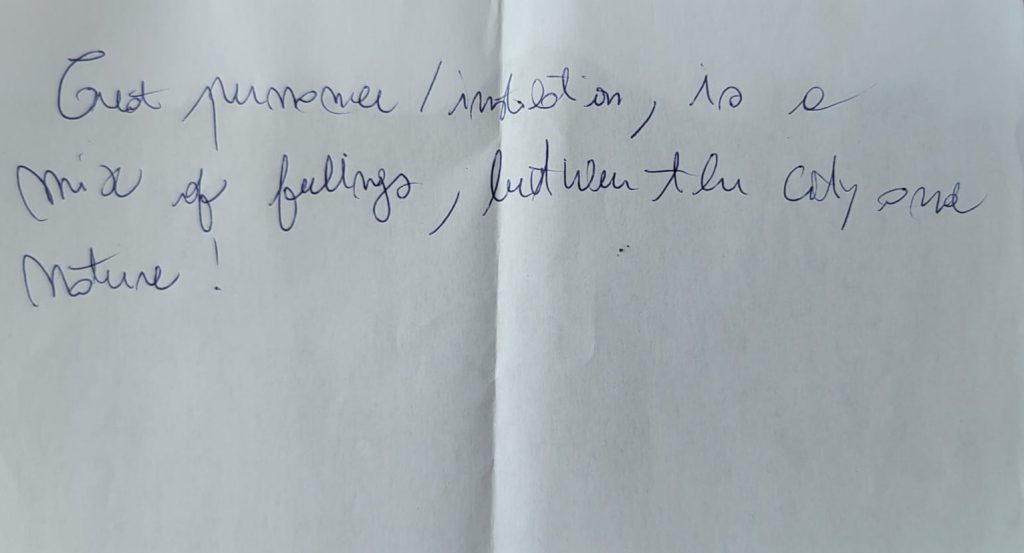 Great permanence / instalation, is a
mix of feelings, between the city and
nature!